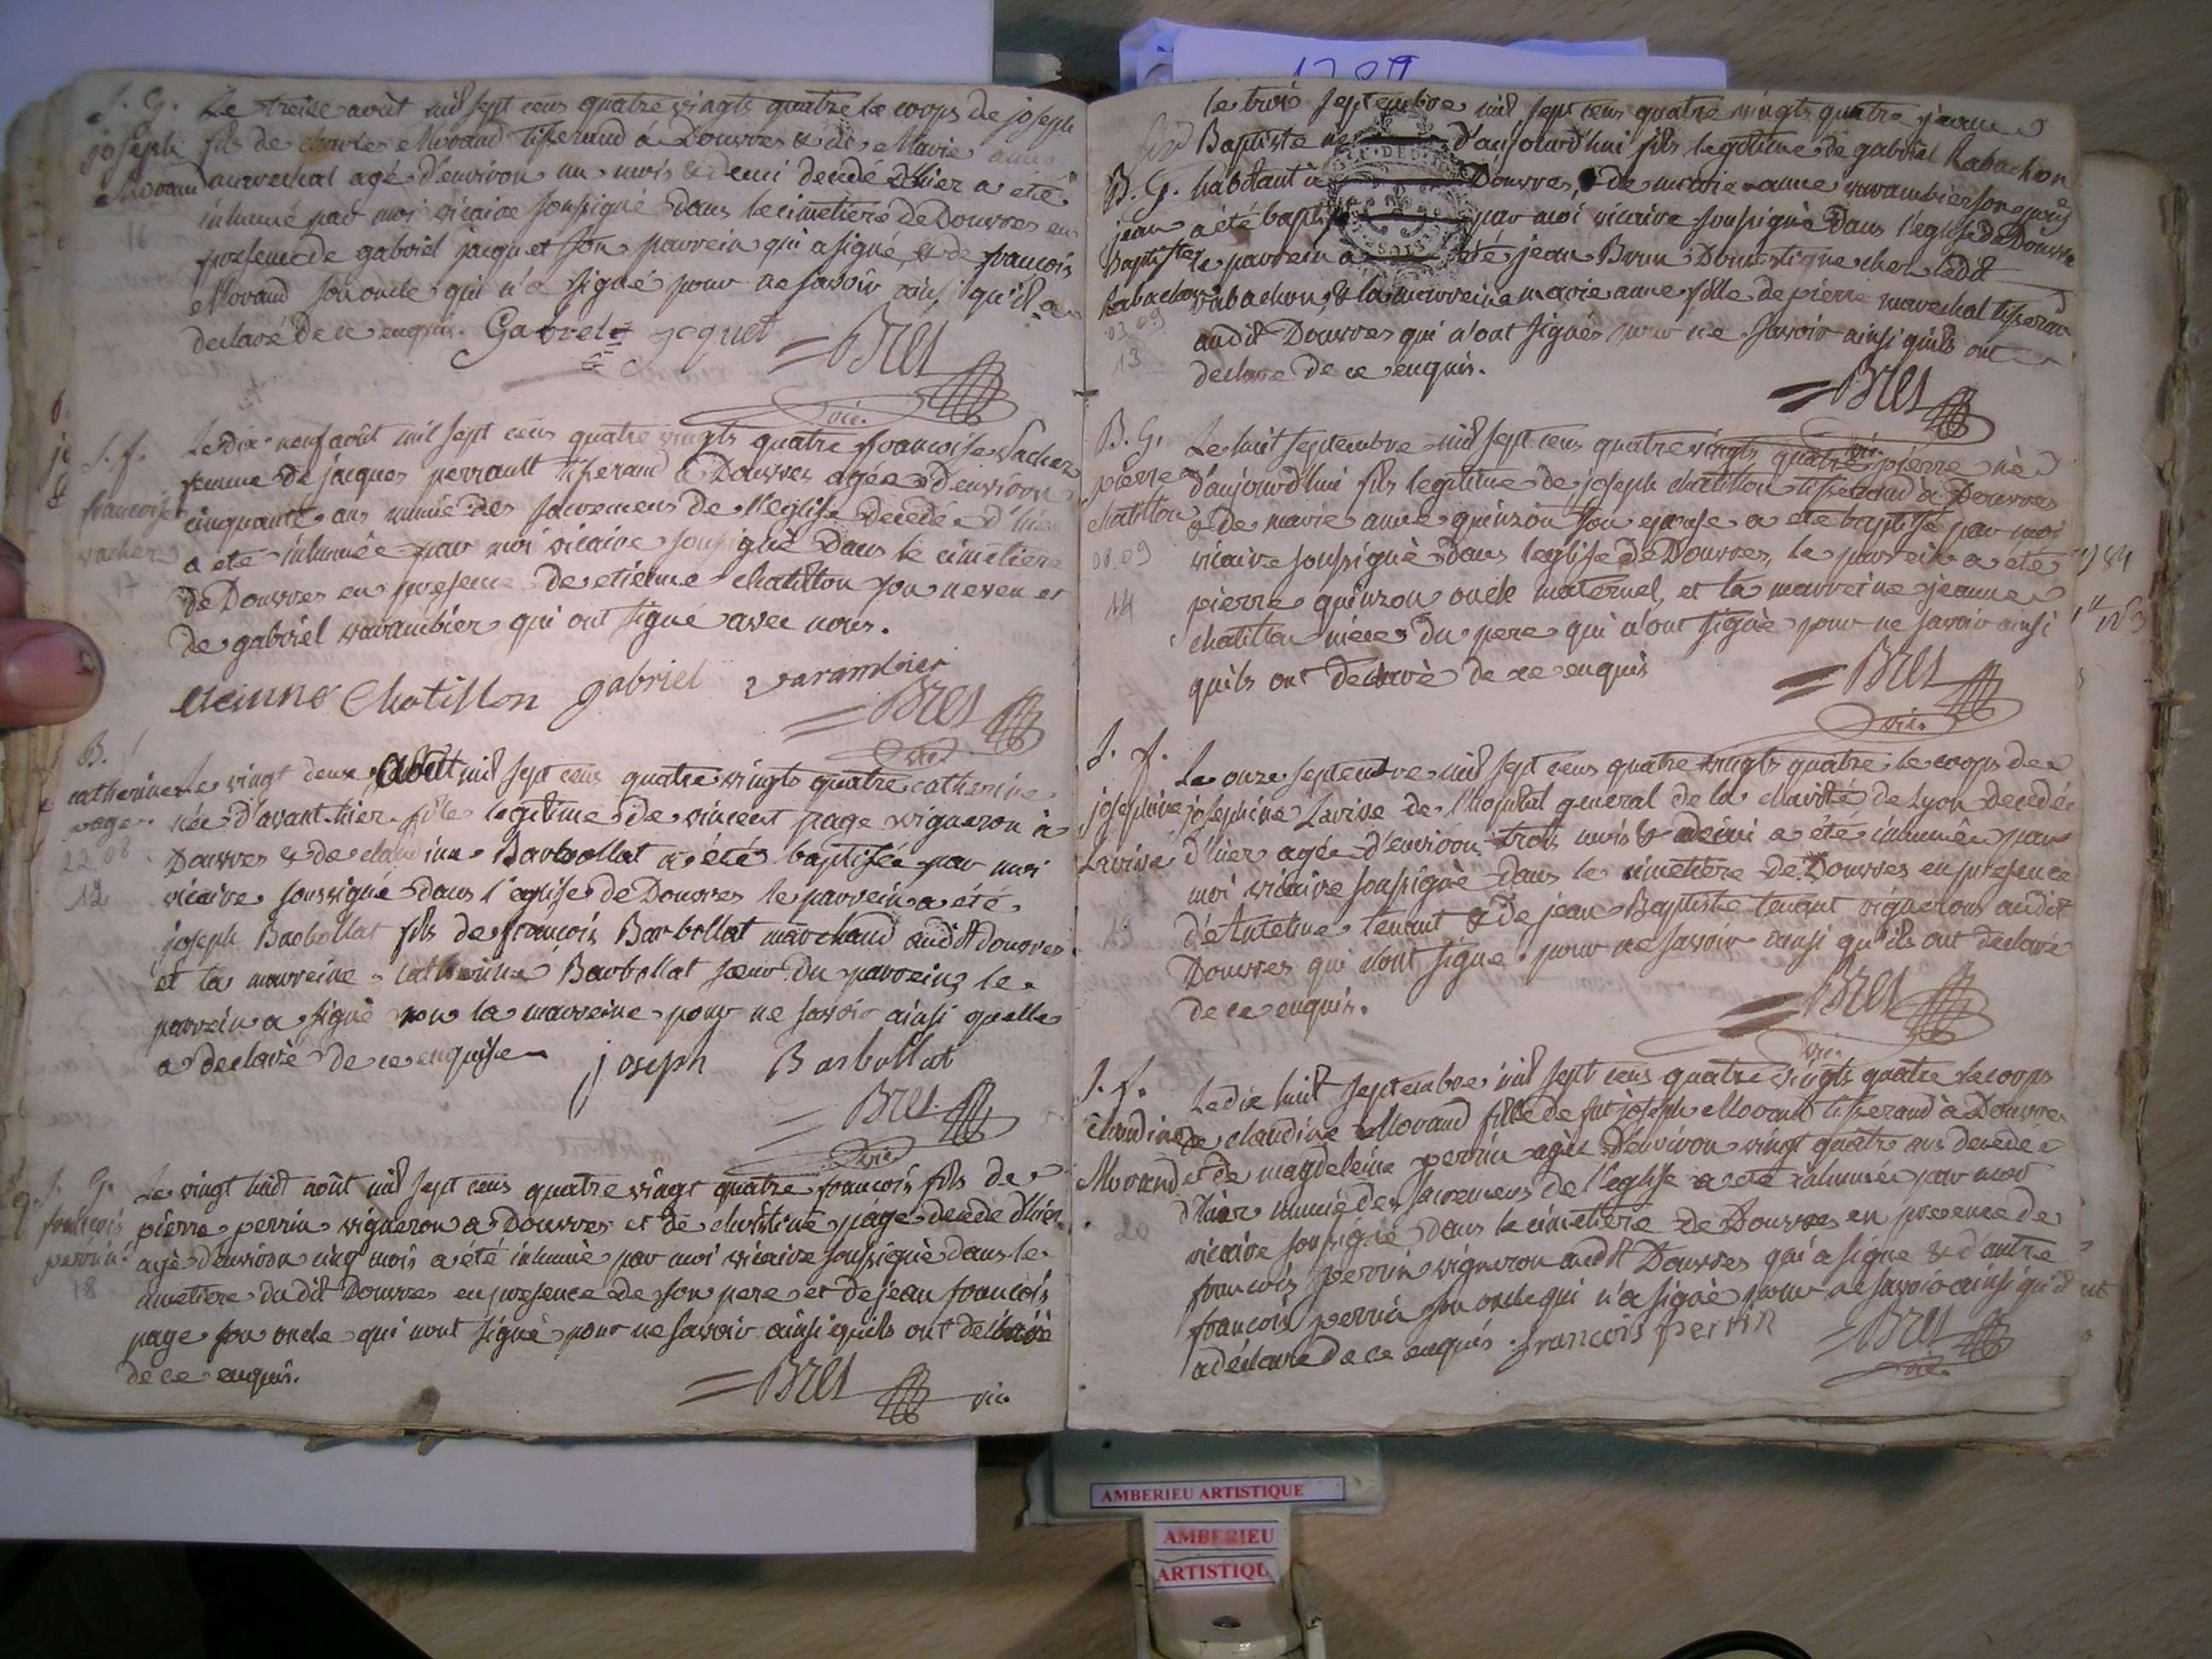 S. G.
joseph
Morand
16
Le treise août mil sept cens quatre vingts quatre le corps de joseph
fils de charles Morand tisserand a Douvres & de Marie anne
marechal agé d'environ un mois & demi decedé d'hier a été
inhumé par moi vicaire soussigné dans le cimetiere de Douvres en
presence de gabriel jacquet son parrein qui a signé, & de francois
Morand son oncle qui n'a signé pour ne savoir ainsi qu'il a
declaré de ce enquis. Gabriel jequet = Bret
vic.
S. f.
francoise
vacher
17
Le dix neuf août mil sept cens quatre vingts quatre francoise vacher
femme de jacques perrault tisserand a Douvres agée d'environ
cinquante ans munie des sacremens de l'eglise decedée d'hier
a été inhumée par moi vicaire soussigné dans le cimetiere
de Douvres en presence de etienne chatillon son neveu et
de gabriel varambier qui ont signé avec nous.
eteinne Chatillon gabriel varambier
= Bret
vic
B.
catherine
page
22.08
12
Le vingt deux Aout mil sept cens quatre vingts quatre catherine
née d'avant-hier fille legitime de vincent page vigneron à
Douvres & de claudine Barbollat a été baptisée par moi
vicaire soussigné dans l'eglise de Douvres le parrein a été
joseph Barbollat fils de françois Barbollat marchand audit douvres
et la marreine catherine Barbollat sœur du parrein, le
parrein a signé non la marreine pour ne savoir ainsi quelle
a declaré de ce enquise joseph Barbollat
= Bret
vic
S. G.
francois
perrin
18
Le vingt huit août mil sept cens quatre vingt quatre francois fils de
pierre perrin vigneron a Douvres et de christine page decede d'hier
agé d'environ cinq mois a été inhumé par moi vicaire soussigné dans le
cimetiere dudit Douvres en presence de son pere et de jean francois
page son oncle qui n'ont signé pour ne savoir ainsi quils ont declaré
de ce enquis.
= Bret vic.
1784
B. G.
jean
Baptiste
Rabachon
03.09
13
le trois septembre mil sept cens quatre vingts quatre jean
Baptiste né d'aujourd'hui fils legitime de gabriel Rabachon
habitant à Douvres, & de marie anne varambier son epouse
a été baptisé par moi vicaire soussigné dans l'eglise de Douvres
le parrein a été jean Brun Domestique chez ledit
rabachon, & la marreine marie anne fille de pierre marechal tisseran
audit Douvres qui n'ont signés pour ne savoir ainsi quils ont
declare de ce enquis.
= Bret
vic.
B. G.
pierre
chatillon
08.09
14
Le huit septembre mil sept cens quatre vingts quatre pierre né
d'aujourd'hui fils legitime de joseph chatillon tisserand à Douvres
& de marie anne guinzon son epouse a été baptisé par moi
vicaire soussigné dans l'eglise de Douvres, le parrein a été
pierre guinzon oncle maternel, et la marreine jeanne
chatillon niece du pere qui n'ont signé pour ne savoir ainsi
quils ont declaré de ce enquis
= Bret
vic.
S. f.
josephine
Larive
19
Le onze septembre mil sept cens quatre vingts quatre le corps de
josephine Larive de l'hopital general de la charité de Lyon decedée
d'hier agée d'environ trois mois & demi a été inhumée par
moi vicaire soussigné dans le cimetiere de Douvres en presence
d'Antelme tenant & de jean Baptiste tenant vignerons audit
Douvres qui n'ont signe pour ne savoir ainsi qu'ils ont declaré
de ce enquis.
= Bret
vic.
S. f.
claudine
Morand
20
Le dix huit septembre mil sept cens quatre vingts quatre le corps
de claudine Morand fille de fut joseph Morand tisserand à Douvres
et de magdeleine perrin agée d'environ vingt quatre ans decedée
d'hier munie des sacremens de l'eglise a eté inhumée par moi
vicaire soussigné dans le cimetiere de Douvres en presence de
francois perrin vigneron audit Douvres qui a signe & d'autre
francois perrin son oncle qui n'a signé pour ne savoir ainsi qu'il
a declare de ce enquis. francois perrin = Bret
vic.
AMBERIEU ARTISTIQUE
AMBERIEU
ARTISTIQU